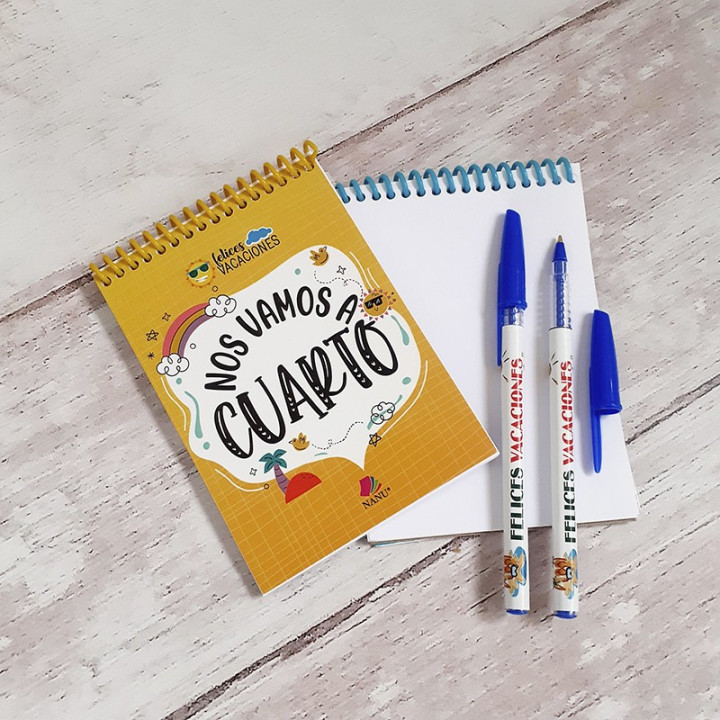 felices
VACACIONES
NOS VAMOS A
CUARTO
NANU®
FELICES VACACIONES
FELICES VACACIONES